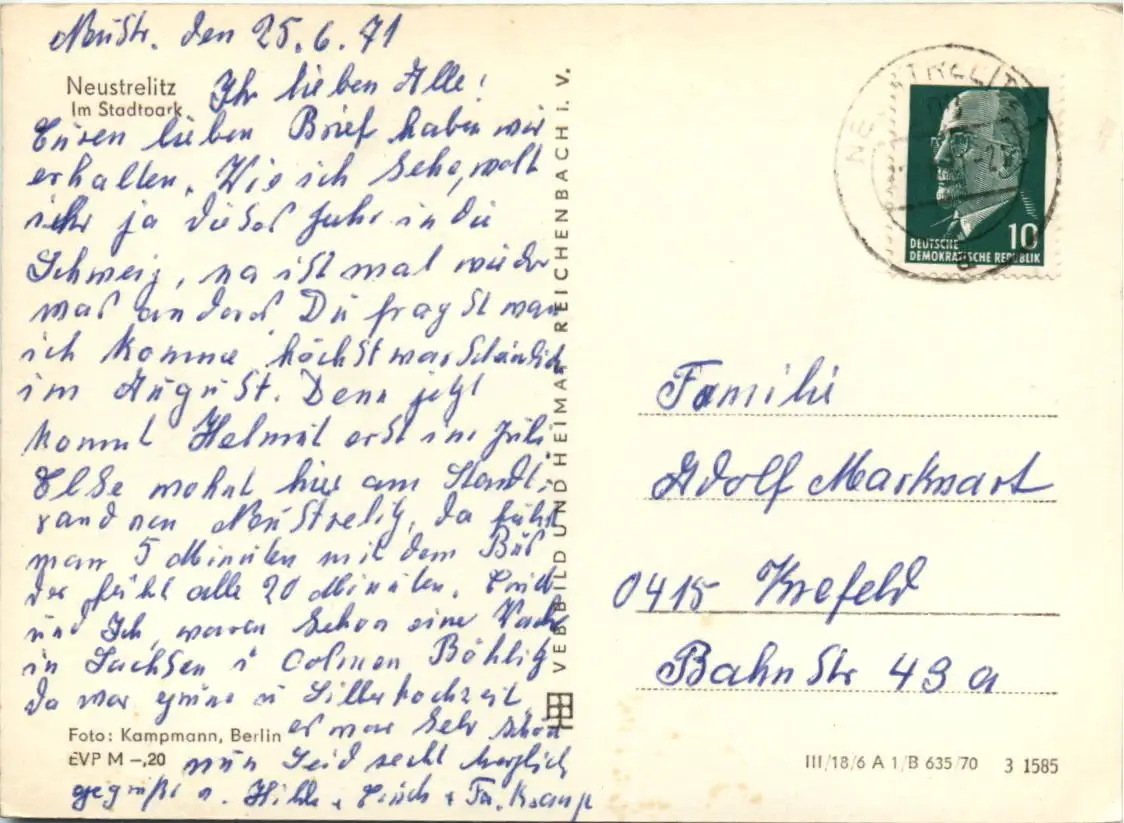 Neustr. den 25.6.71
Neustrelitz
Im Stadtpark
Ihr lieben Alle!
Euren lieben Brief haben wir
erhalten. Wie ich sehe, wolt
ihr ja dieses Jahr in die
Schweiz, na ist mal wieder
was anderes Du fragst wan
ich komme, höchstwarscheinlich
im August. Denn jetzt
kommt Helmut erst im Juli
Else wohnt hier am Standt,
rand von Neustrelitz, da fährt
man 5 Minuten mit dem Bus
der fährt alle 20 Minuten.
und Ich, waren schon eine Woche
in Sachsen i Böhlitz
da war grüne u Silberhochzeit,
es war sehr schön
nun Seid recht herzlich
gegrüßt v. + + Fa. Kramp
Foto: Kampmann, Berlin
EVP M –,20
VEB BILD UND HEIMAT REICHENBACH I. V.
NEUSTRELITZ
10
DEUTSCHE
DEMOKRATISCHE REPUBLIK
Familie
Adolf Markwart
0415 Krefeld
Bahnstr 49 a
III/18/6 A 1/B 635/70 3 1585